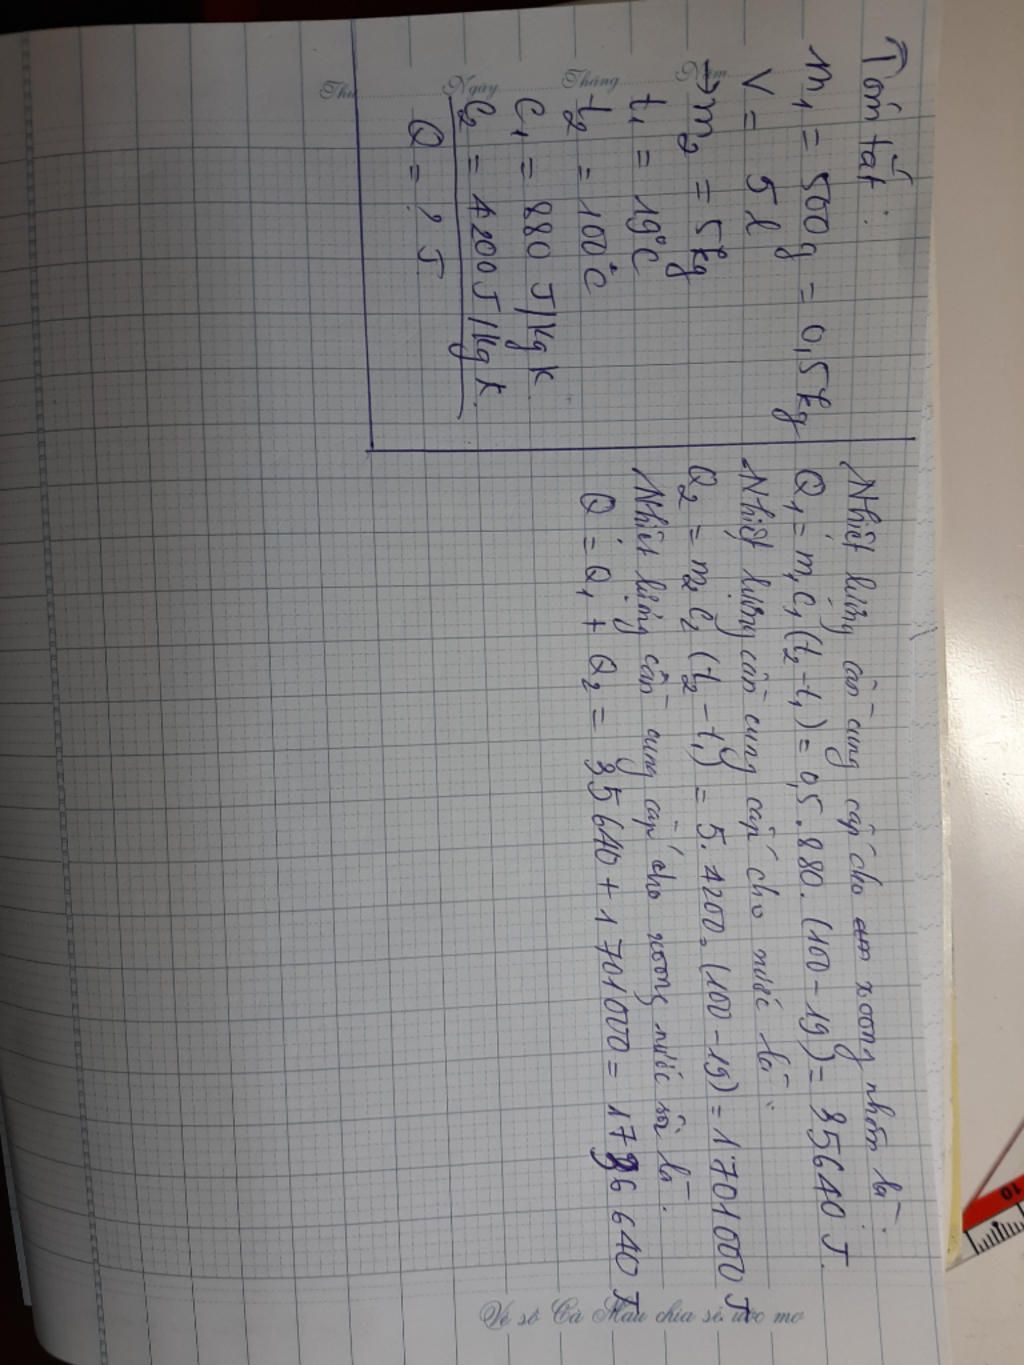 Tóm tắt :
m1 = 500g = 0,5kg
V = 5l
→ m2 = 5kg
t1 = 19°C
t2 = 100°C
C1 = 880 J/kg K
C2 = 4200J/kg K
Q = ? J
Nhiệt lượng cần cung cấp cho xoong nhôm là :
Q1 = m1C1 (t2 - t1) = 0,5.880.(100 - 19) = 35640 J
Nhiệt lượng cần cung cấp cho nước là :
Q2 = m2C2 (t2 - t1) = 5.4200.(100 - 19) = 1701000 J
Nhiệt lượng cần cung cấp cho xoong nước sôi là :
Q = Q1 + Q2 = 35640 + 1701000 = 1736640 J
Thứ Ngày Tháng Năm
Vé số Cà Mau chia sẻ ước mơ
10